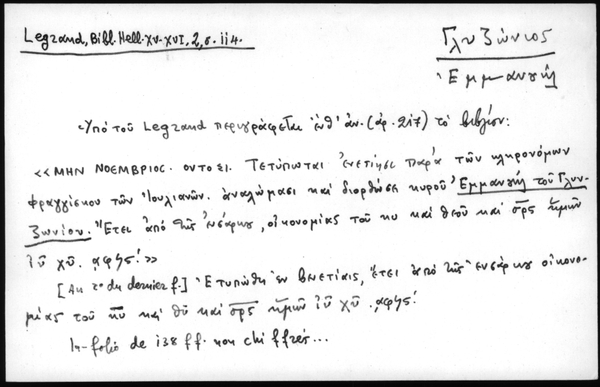 Legrand, Bibl. Hell. XV-XVI, 2, σ. 114.
Γλυζώνιος
Ἐμμανουήλ
Ὑπό τοῦ Legrand περιγράφεται ἐνθ' ἀν. (ἀρ. 217) τό βιβλίον:
«ΜΗΝ ΝΟΕΜΒΡΙΟΣ. οντοσι. Τετύπωται ἐνετίησι παρά τῶν κληρονόμων
φραγγίσκου τῶν Ἰουλιανῶν. ἀναλώμασι καί διορθώσει κυροῦ Ἐμμανουήλ τοῦ Γλυν-
ζωνίου. Ἔτει ἀπό τῆς ἐνσάρκου, οἰκονομίας τοῦ κυ καί θεοῦ καί σρς ἡμῶν
ἰῦ χῦ. ͵αφϟς!»
[Au r° du dernier f.] Ἐτυπώθη ἐν Βενετίαις, ἔτει ἀπό τῆς ἐνσάρκου οἰκονο-
μίας τοῦ κυ καί θῦ καί σρς ἡμῶν ἰῦ χῦ. ͵αφϟς!
In-folio de 138 ff. non chiffrés...